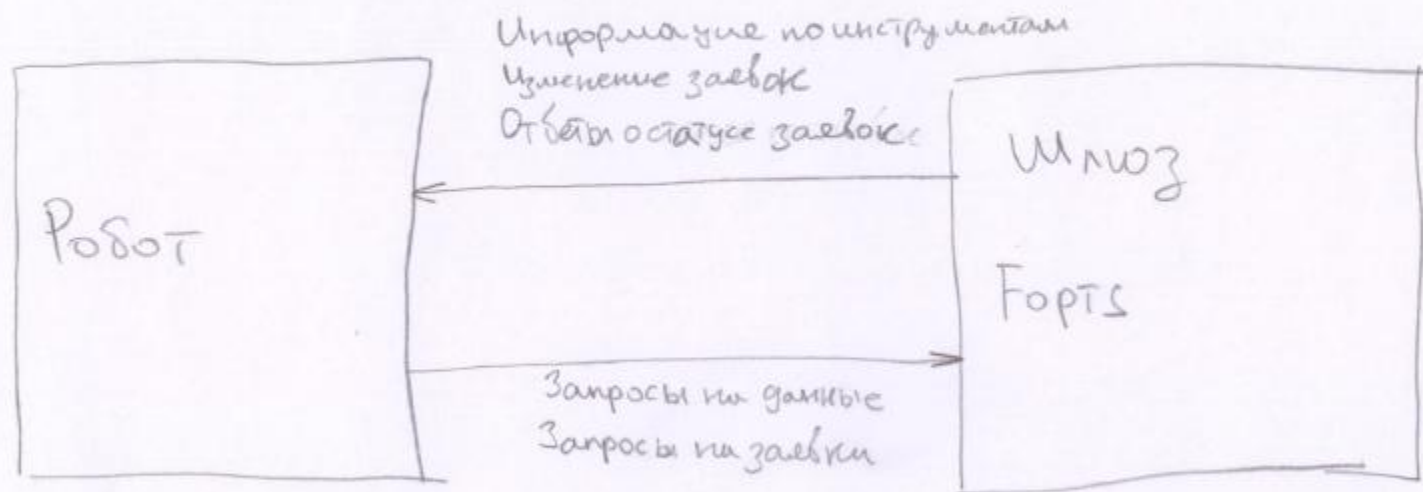 Информация по инструментам
Изменение заявок
Ответы о статусе заявок
Робот
Шлюз
Forts
Запросы на данные
Запросы на заявки